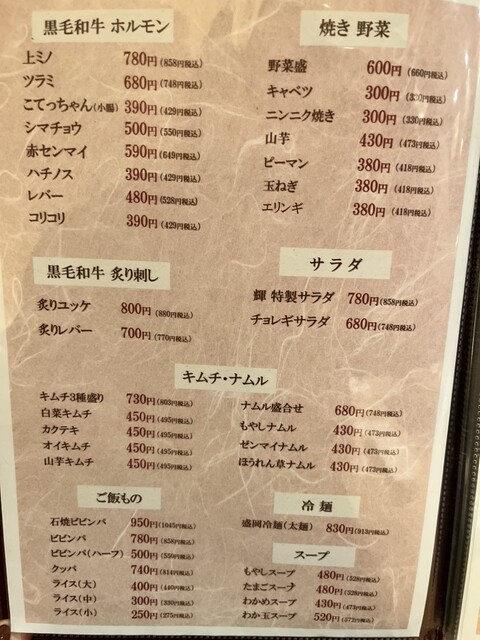 黒毛和牛 ホルモン
上ミノ 780円(858円税込)
ツラミ 680円(748円税込)
こてっちゃん(小腸) 390円(429円税込)
シマチョウ 500円(550円税込)
赤センマイ 590円(649円税込)
ハチノス 390円(429円税込)
レバー 480円(528円税込)
コリコリ 390円(429円税込)
焼き 野菜
野菜盛 600円(660円税込)
キャベツ 300円(330円税込)
ニンニク焼き 300円(330円税込)
山芋 430円(473円税込)
ピーマン 380円(418円税込)
玉ねぎ 380円(418円税込)
エリンギ 380円(418円税込)
黒毛和牛 炙り刺し
炙りユッケ 800円(880円税込)
炙りレバー 700円(770円税込)
サラダ
輝 特製サラダ 780円(858円税込)
チョレギサラダ 680円(748円税込)
キムチ・ナムル
キムチ3種盛り 730円(803円税込)
白菜キムチ 450円(495円税込)
カクテキ 450円(495円税込)
オイキムチ 450円(495円税込)
山芋キムチ 450円(495円税込)
ナムル盛合せ 680円(748円税込)
もやしナムル 430円(473円税込)
ゼンマイナムル 430円(473円税込)
ほうれん草ナムル 430円(473円税込)
ご飯もの
石焼ビビンパ 950円(1045円税込)
ビビンパ 780円(858円税込)
ビビンパ(ハーフ) 500円(550円税込)
クッパ 740円(814円税込)
ライス(大) 400円(440円税込)
ライス(中) 300円(330円税込)
ライス(小) 250円(275円税込)
冷麺
盛岡冷麺(太麺) 830円(913円税込)
スープ
もやしスープ 480円(528円税込)
たまごスープ 480円(528円税込)
わかめスープ 430円(473円税込)
わか玉スープ 520円(572円税込)